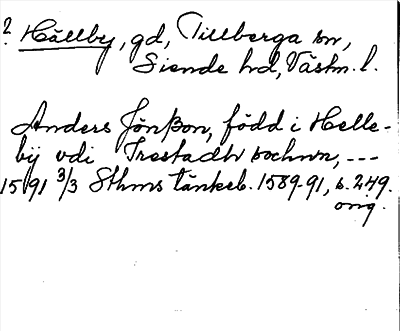 ? Hällby, gd, Tillberga sn,
Siende hd, Västm. l.
Anders Jönßon, född i Helle-
bÿ vdi Trestadh sochnn, ---
1591 3/3 Sthms tänkeb. 1589-91, s. 249.
orig.